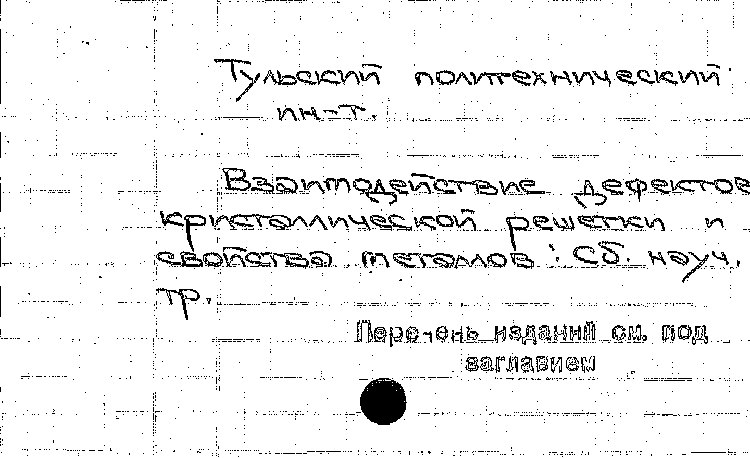 Тульский политехнический
ин-т.
Взаимодействие дефектов
кристаллической решетки и
свойства металлов : Сб. науч.
тр.
Перечень изданий см. под
заглавием